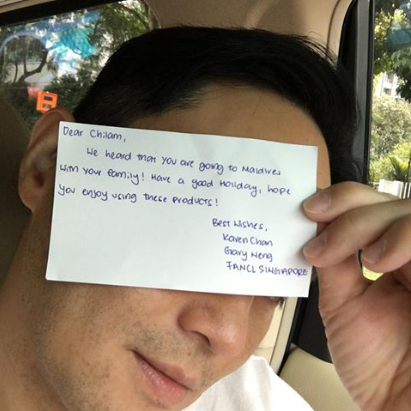 Dear Chiam,
We heard that you are going to Maldives
with your family! Have a good holiday, hope
you enjoy using these products!
Best Wishes,
Karen Chan
Gary Neng
FANCL SINGAPORE